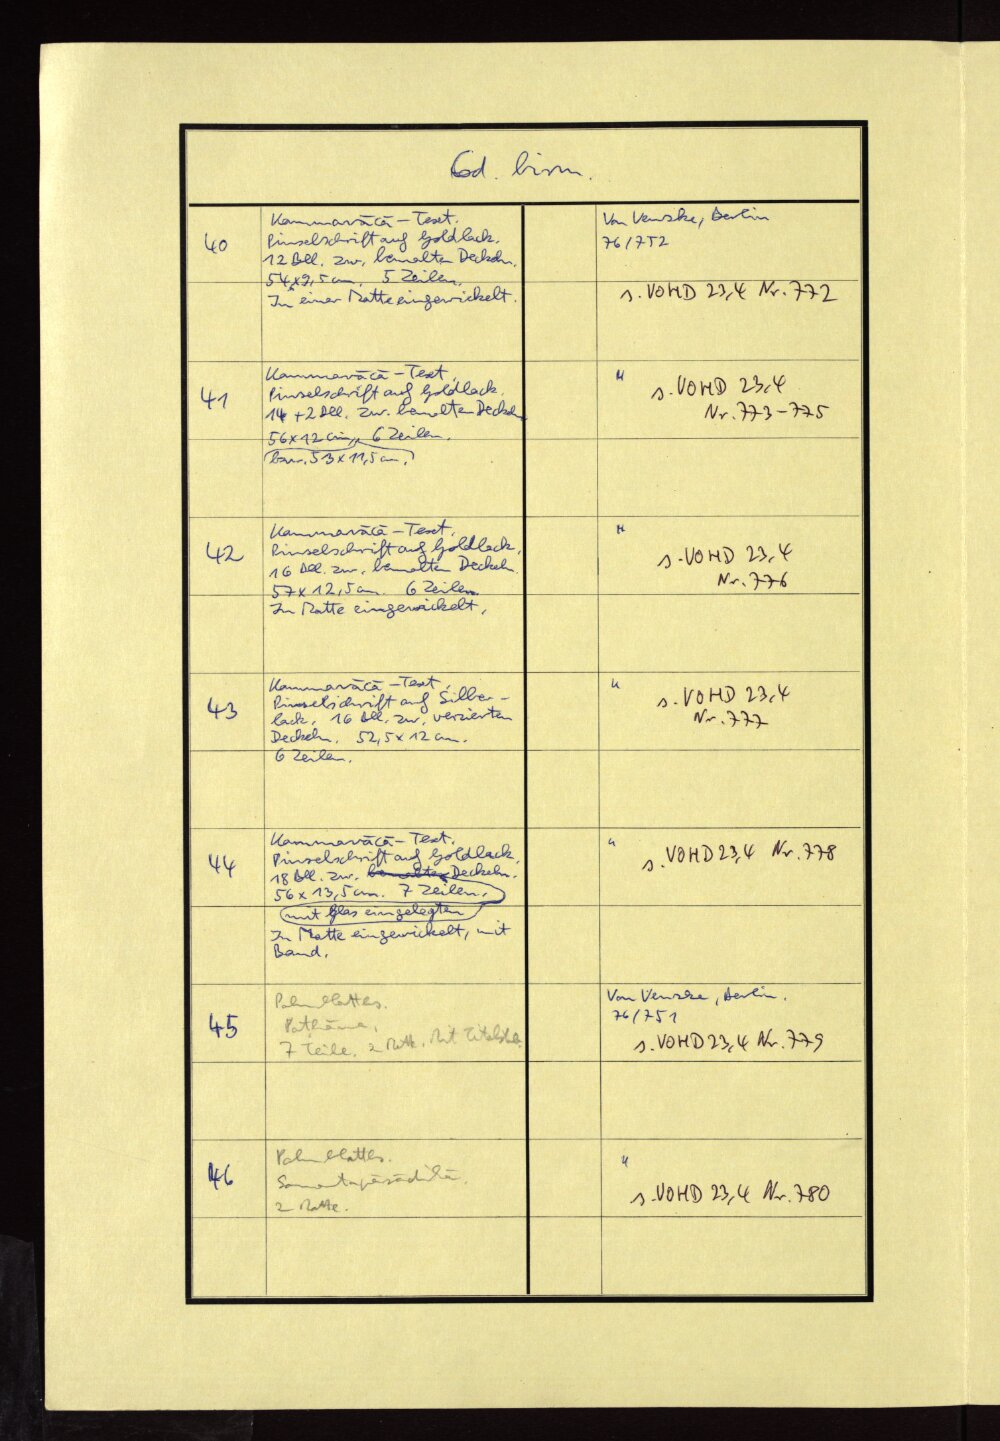 Cod. birm.
40
Kammavācā-Text.
Pinselschrift auf Goldlack.
12 Bll. zw. bemalten Deckeln.
54x9,5 cm. 5 Zeilen.
In einer Matte eingewickelt.
Von Venzke, Berlin
76/752
s. VOHD 23,4 Nr. 772
41
Kammavācā-Text.
Pinselschrift auf Goldlack.
14 + 2 Bll. zw. bemalten Deckeln
56x12 cm, 6 Zeilen.
bzw. 53 x 11,5 cm.
"
s. VOHD 23,4
Nr. 773-775
42
Kammavācā-Text.
Pinselschrift auf Goldlack.
16 Bll. zw. bemalten Deckeln
57x12,5 cm. 6 Zeilen.
In Matte eingewickelt.
"
s. VOHD 23,4
Nr. 776
43
Kammavācā-Text.
Pinselschrift auf Silber-
lack. 16 Bll. zw. verzierten
Deckeln. 52,5 x 12 cm.
6 Zeilen.
"
s. VOHD 23,4
Nr. 777
44
Kammavācā-Text.
Pinselschrift auf Goldlack.
18 Bll. zw. bemalten Deckeln.
56 x 13,5 cm. 7 Zeilen.
mit Glas eingelegten
In Matte eingewickelt, mit
Band.
"
s. VOHD 23,4 Nr. 778
45
Palmblatths.
Paṭṭhāna.
7 Teile. 2 Matte. Mit
Von Venzke, Berlin.
76/751
s. VOHD 23,4 Nr. 779
46
Palmblatths.
Samantapāsādikā.
2 Matte.
"
s. VOHD 23,4 Nr. 780